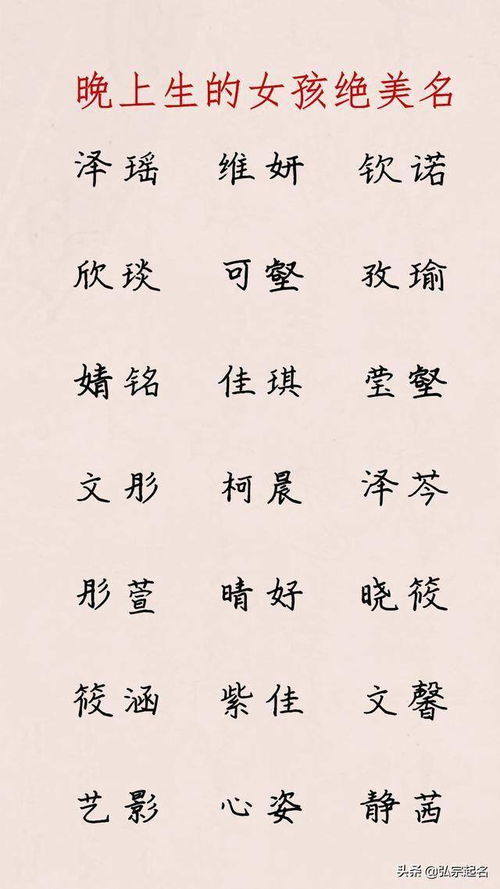 晚上生的女孩绝美名
泽瑶 维妍 钦诺
欣琰 可壑 孜瑜
婧铭 佳琪 莹壑
文彤 柯晨 泽芩
彤萱 晴好 晓筱
筱涵 紫佳 文馨
艺影 心姿 静茜
头条 @弘宗起名